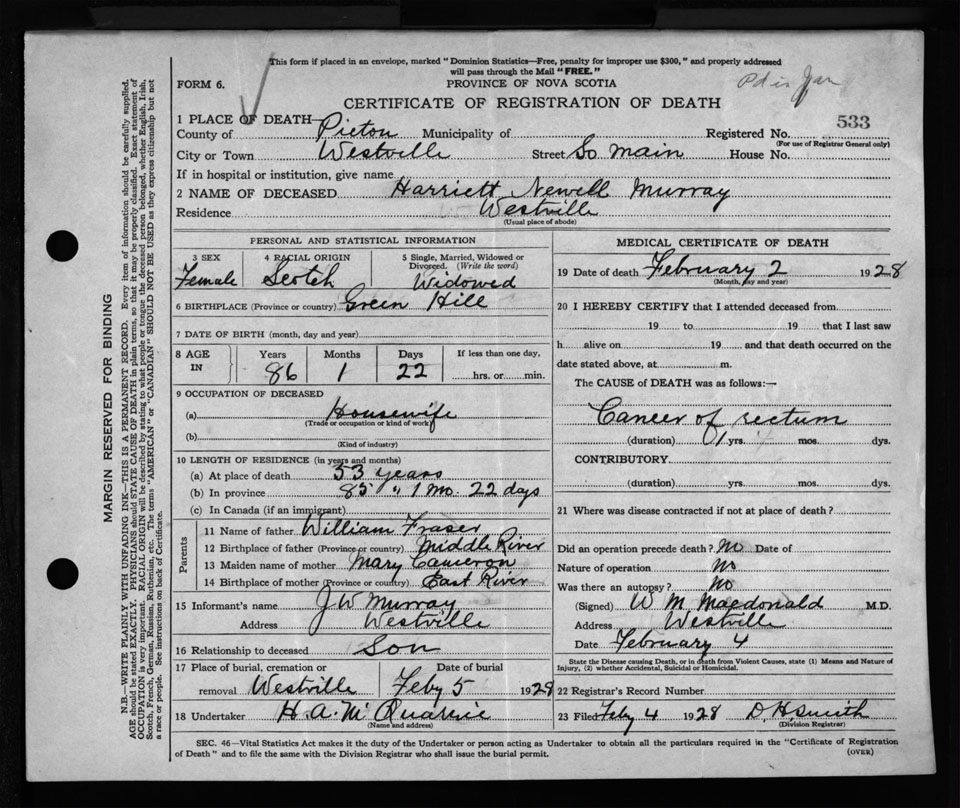 This form if placed in an envelope, marked "Dominion Statistics—Free, penalty for improper use $300," and properly addressed
will pass through the Mail "FREE."
FORM 6.
PROVINCE OF NOVA SCOTIA
CERTIFICATE OF REGISTRATION OF DEATH
1 PLACE OF DEATH
County of Pictou Municipality of Registered No. 533
(For use of Registrar General only)
City or Town Westville Street So main House No.
If in hospital or institution, give name
2 NAME OF DECEASED Harriett Newell Murray
Residence Westville
(Usual place of abode)
PERSONAL AND STATISTICAL INFORMATION
3 SEX 4 RACIAL ORIGIN 5 Single, Married, Widowed or Divorced. (Write the word)
Female Scotch Widowed
6 BIRTHPLACE (Province or country) Green Hill
7 DATE OF BIRTH (month, day and year)
8 AGE IN Years Months Days If less than one day,
86 1 22 hrs. or min.
9 OCCUPATION OF DECEASED
(a) Housewife
(Trade or occupation or kind of work)
(b)
(Kind of industry)
10 LENGTH OF RESIDENCE (in years and months)
(a) At place of death 53 years
(b) In province 85 " 1 mo. 22 days
(c) In Canada (if an immigrant)
Parents
11 Name of father William Fraser
12 Birthplace of father (Province or country) Middle River
13 Maiden name of mother Mary Cameron
14 Birthplace of mother (Province or country) East River
15 Informant's name J W Murray
Address Westville
16 Relationship to deceased Son
17 Place of burial, cremation or removal Westville
Date of burial Feby 5 1928
18 Undertaker H. A. McQuarrie
(Name and address)
MEDICAL CERTIFICATE OF DEATH
19 Date of death February 2 1928
(Month, day and year)
20 I HEREBY CERTIFY that I attended deceased from
19 to 19 that I last saw
h alive on 19 and that death occurred on the
date stated above, at m.
The CAUSE of DEATH was as follows:—
Cancer of rectum
(duration) 1 yrs. mos. dys.
CONTRIBUTORY
(duration) yrs. mos. dys.
21 Where was disease contracted if not at place of death?
Did an operation precede death? No Date of
Nature of operation no
Was there an autopsy? no
(Signed) W M Macdonald M.D.
Address Westville
Date February 4
State the Disease causing Death, or in death from Violent Causes, state (1) Means and Nature of
Injury, (2) whether Accidental, Suicidal or Homicidal.
22 Registrar's Record Number
23 Filed Feby 4 1928 D. H. Smith
(Division Registrar)
SEC. 46—Vital Statistics Act makes it the duty of the Undertaker or person acting as Undertaker to obtain all the particulars required in the "Certificate of Registration
of Death" and to file the same with the Division Registrar who shall issue the burial permit.
(OVER)
MARGIN RESERVED FOR BINDING
N.B.—WRITE PLAINLY WITH UNFADING INK—THIS IS A PERMANENT RECORD. Every item of information should be carefully supplied.
AGE should be stated EXACTLY. PHYSICIANS should STATE CAUSE OF DEATH in plain terms, so that it may be properly classified. Exact statement of
OCCUPATION is very important. RACIAL ORIGIN will be described by stating to what people or tongue the deceased person belonged, whether English, Irish,
Scotch, French, German, Russian, Ruthenian, etc. The terms "AMERICAN" or "CANADIAN" SHOULD NOT BE USED as they express citizenship but not
a race or people. See instructions on back of Certificate.